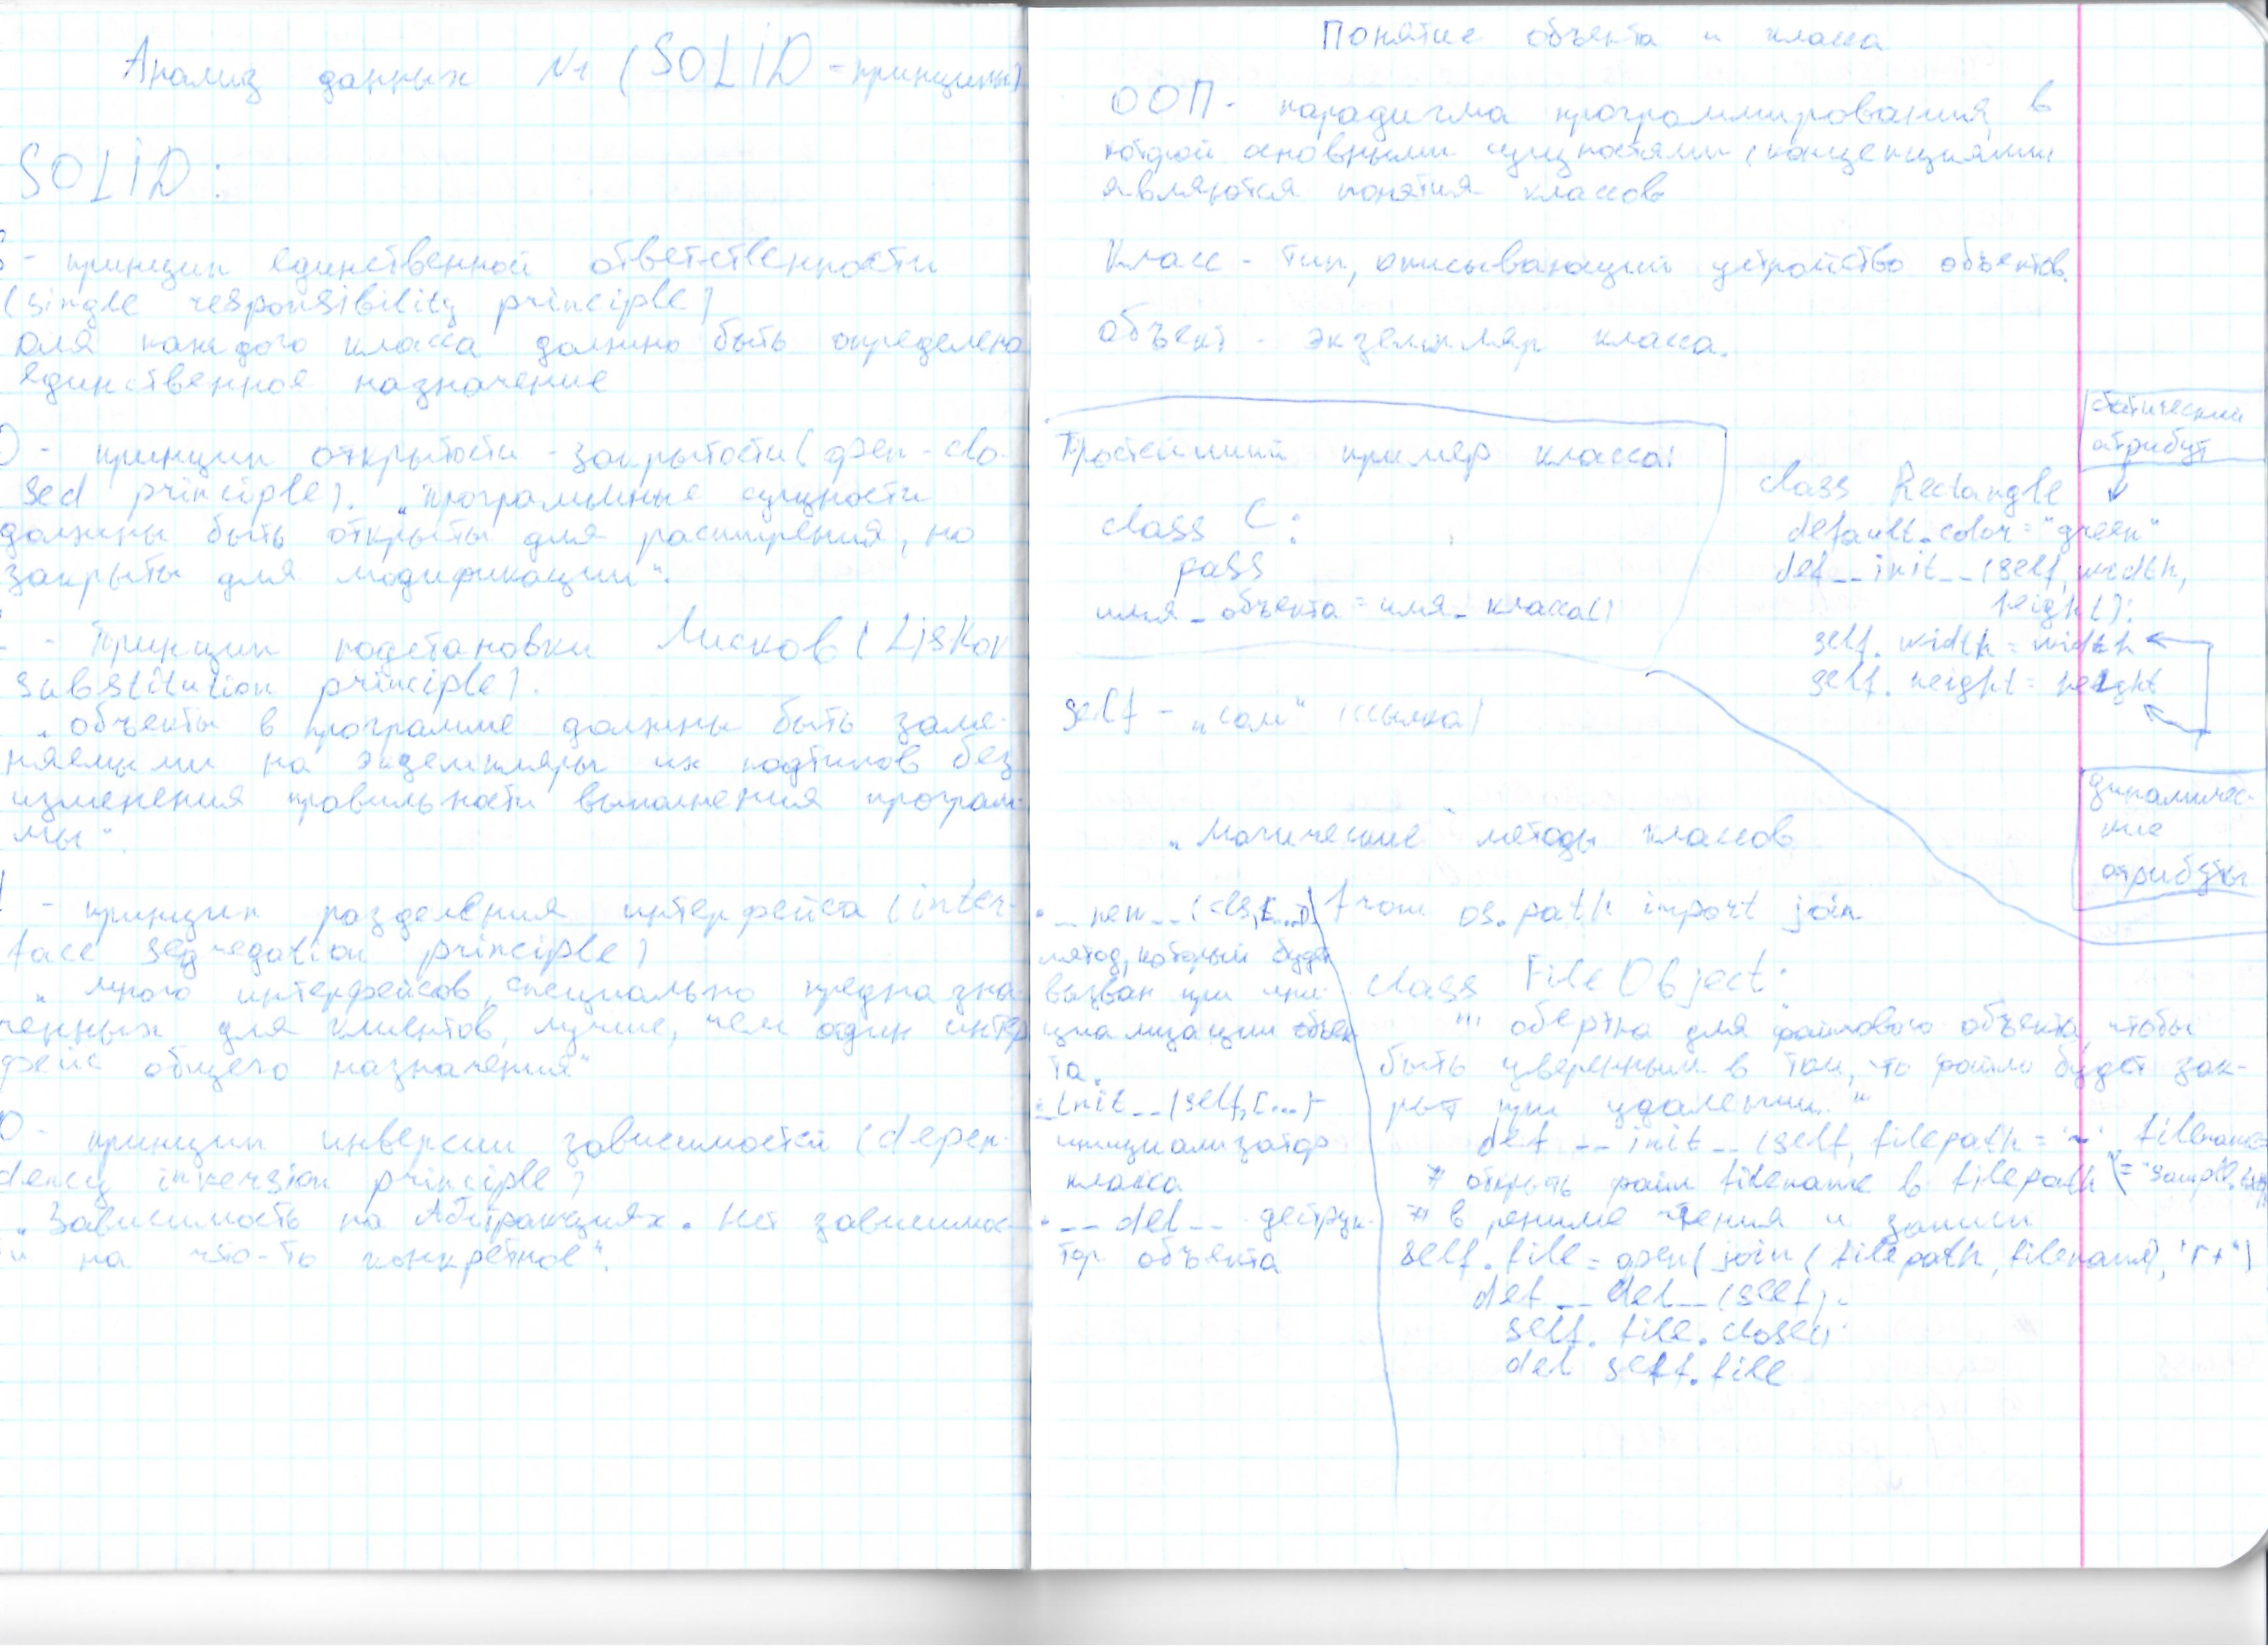 Анализ данных №1 (SOLID - принципы)
SOLID:
S - принцип единственной ответственности
(single responsibility principle)
Для каждого класса должно быть определено
единственное назначение
O - принцип открытости - закрытости (open-clo-
sed principle). „Программные сущности
должны быть открыты для расширения, но
закрыты для модификации".
L - Принцип подстановки Лисков (Liskov
substitution principle).
„объекты в программе должны быть заме-
няемыми на экземпляры их подтипов без
изменения правильности выполнения програм-
мы".
I - принцип разделения интерфейса (inter-
face segregation principle)
„много интерфейсов, специально предназна-
ченных для клиентов, лучше, чем один интер
фейс общего назначения"
D - принцип инверсии зависимостей (depen-
dency inversion principle)
„Зависимость на Абстракциях. Нет зависимос-
ти на что-то конкретное".
Понятие объекта и класса
ООП - парадигма программирования, в
которой основными сущностями (концепциями)
являются понятия классов
Класс - тип, описывающий устройство объектов.
объект - экземпляр класса.
Простейший пример класса:
class C:
pass
имя_объекта = имя_класса()
статический
атрибут
class Rectangle
default_color = "green"
def __init__(self, width,
height):
self.width = width
self.height = height
динамичес-
кие
атрибуты
self - „сам" (ссылка)
„Магические" методы классов
• __new__(cls,[...])
метод, который будет
вызван при ини-
циализации объек-
та.
• __init__(self,[...]) -
инициализатор
класса
• __del__ - деструк-
тор объекта
from os.path import join
class FileObject:
""" обертка для файлового объекта, чтобы
быть уверенным в том, что файл будет зак-
рыт при удалении."
def __init__(self, filepath = '~', filename
= "sample.txt")
# открыть файл filename в filepath
# в режиме чтения и записи
self.file = open(join(filepath, filename), "r+")
def __del__(self):
self.file.close()
del self.file